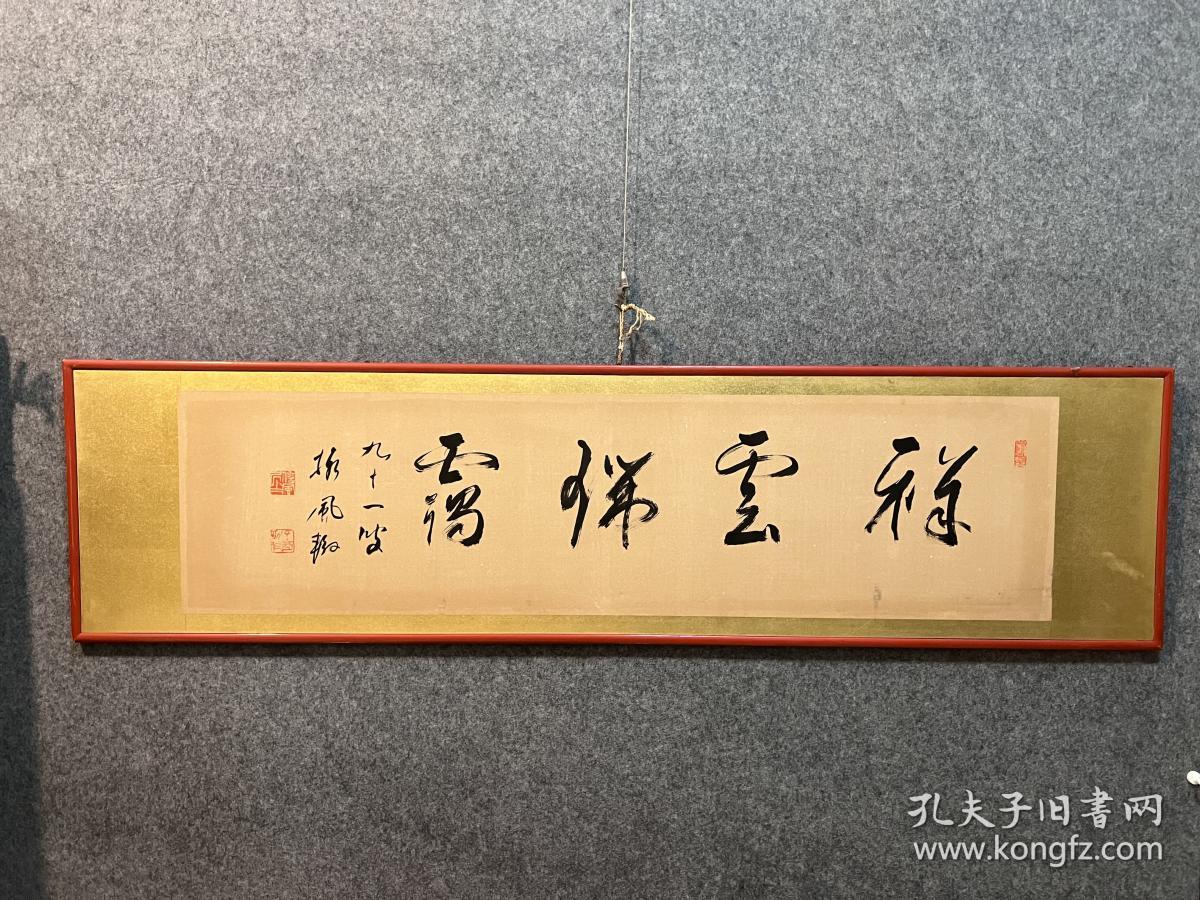 祥雲瑞靄
九十一叟
振風
孔夫子旧書网
www.kongfz.com